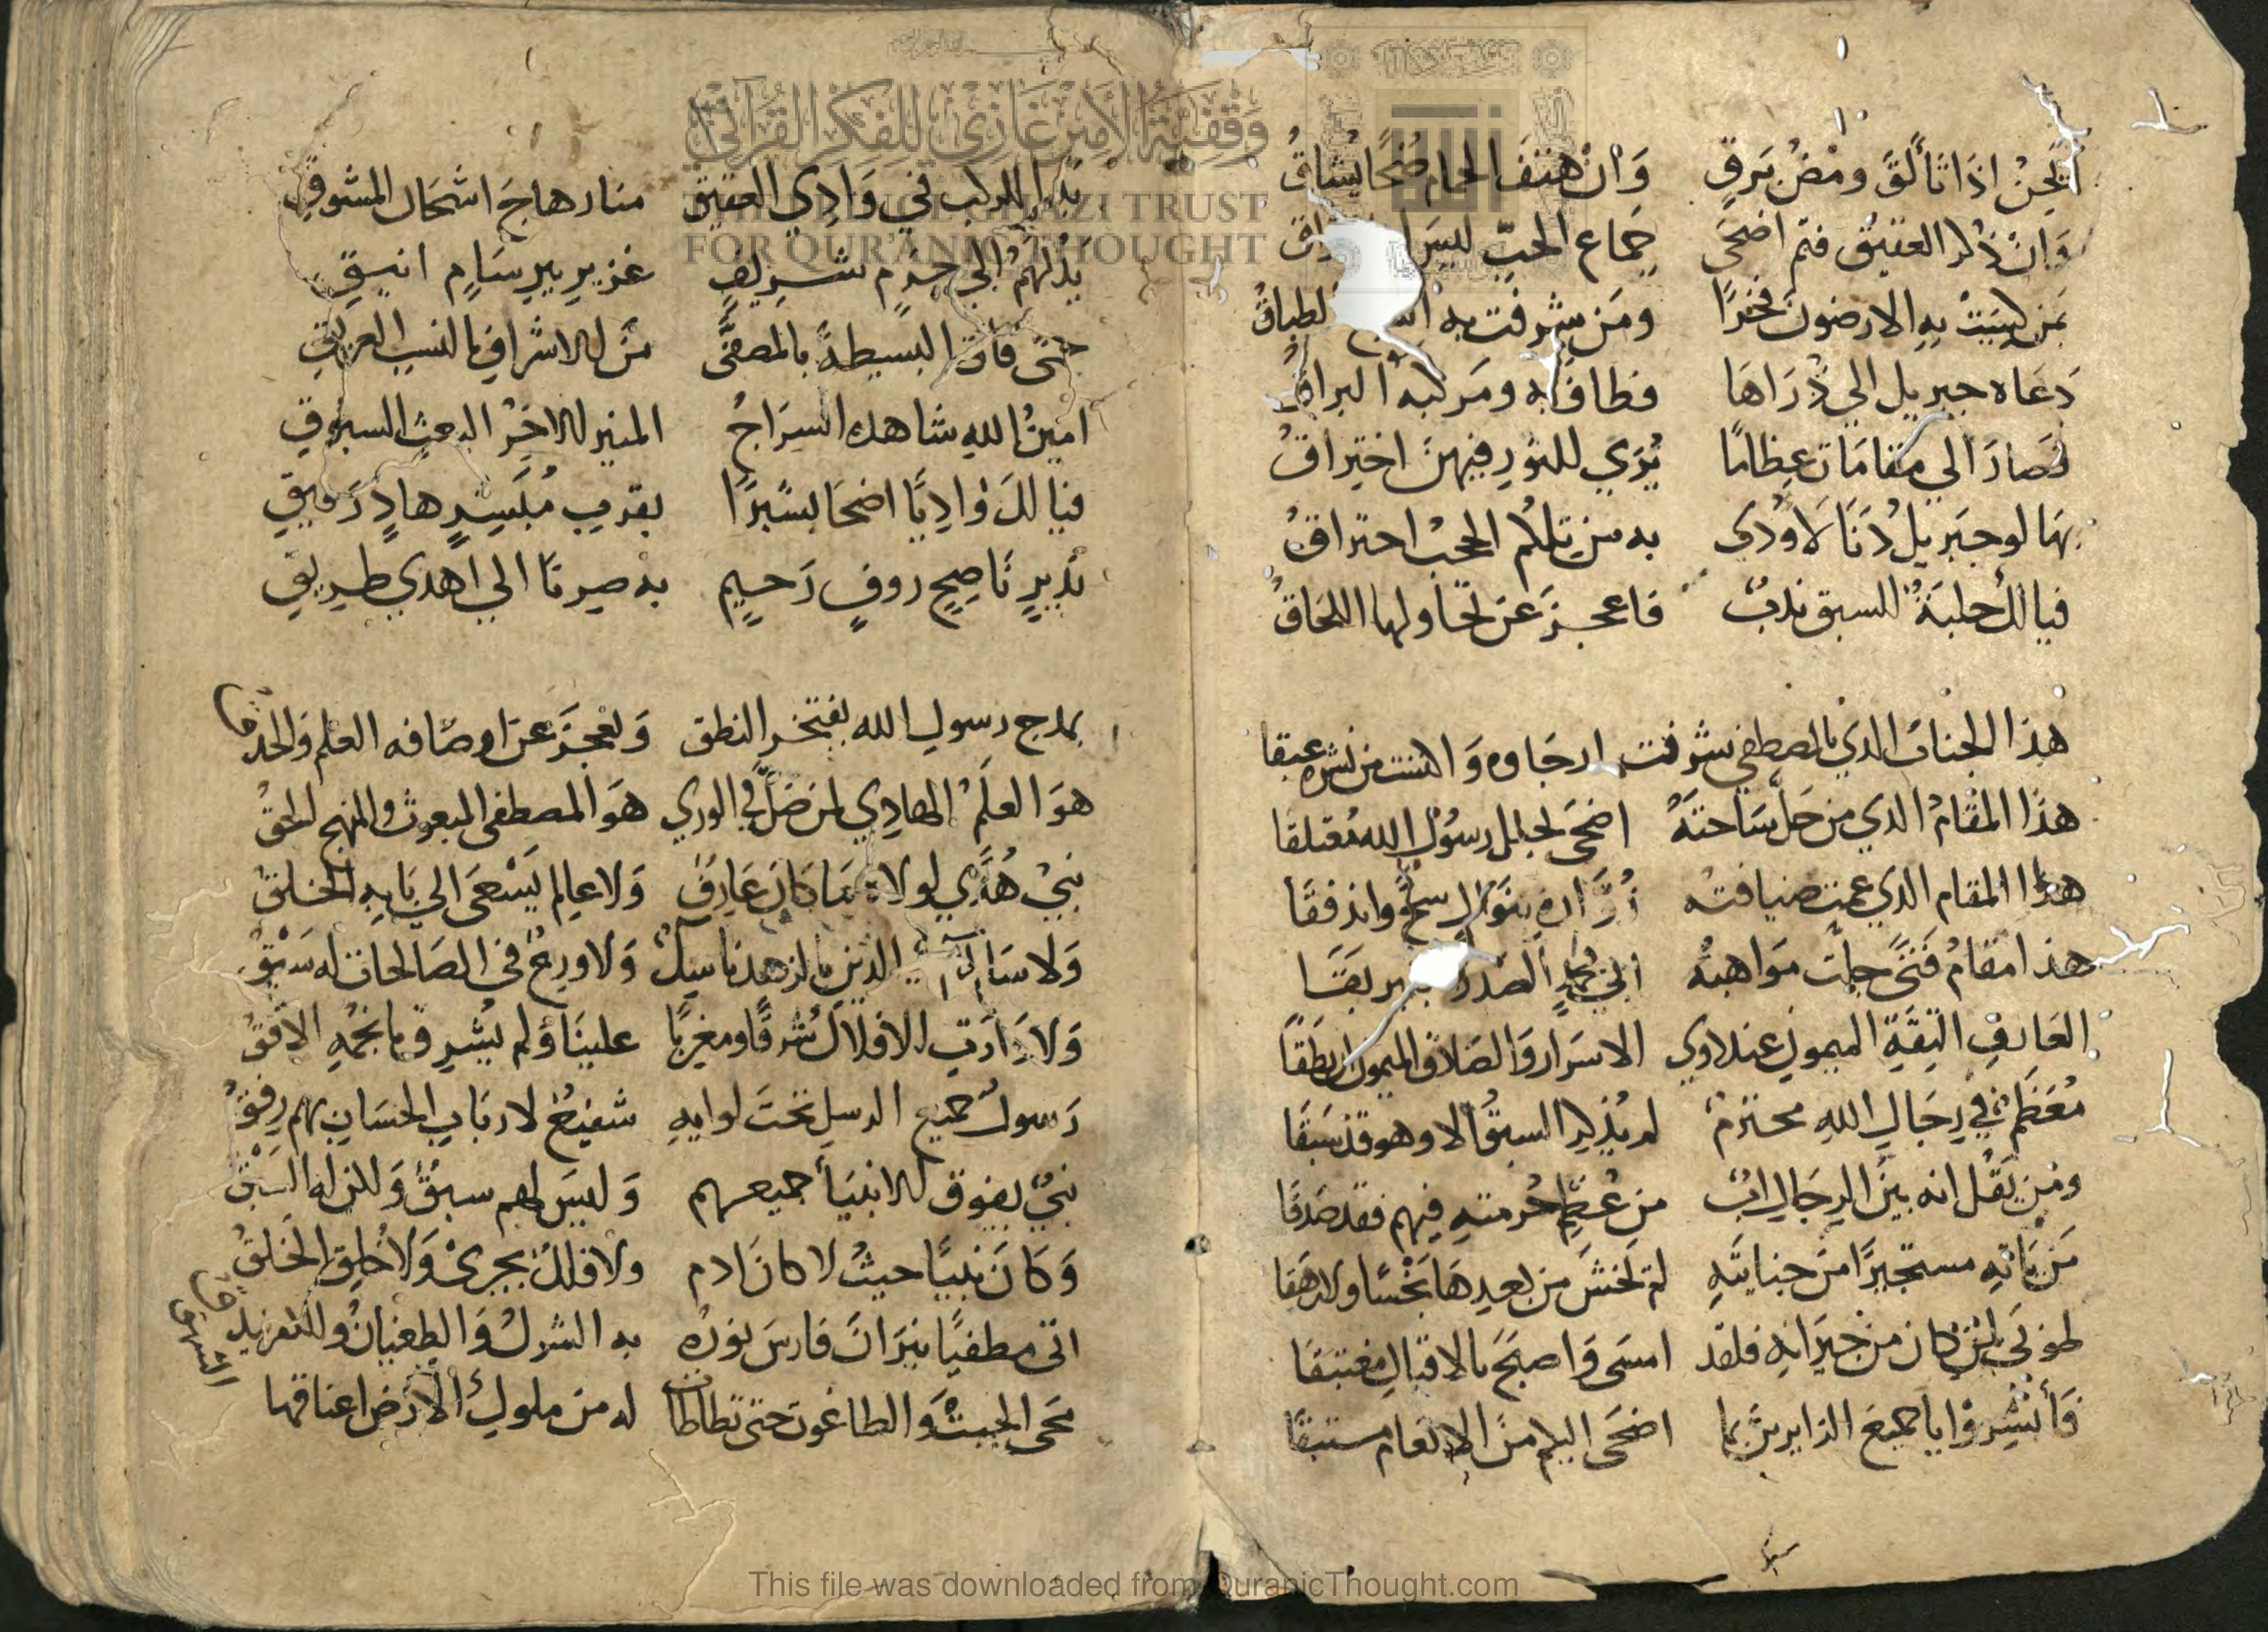 تحن اذا تألق ومض برق وان هتف الحمام ضحا يشاق
وان ذكر العقيق فتم اضحى جماع الحب ليس
بمن كسيت به الارضون فخرا ومن شرفت به الطباق
دعاه جبريل الي ذراها فطاف به ومركبه البراق
فصار الي مقامات عظاما يري للنور فيهن اختراق
بها لو جبريل دنا لاودى به من تلكم الحجب احتراق
فيا لك حلبة للسبق ندب فاعجز عن تحاولها اللحاق
هذا الجناب الذي بالمصطفي شرفت ارجاوه واكتست من نشره عبقا
هذا المقام الذي من حل ساحته اضحى بحبل رسول الله معتلقا
هذا المقام الذي عمت ضيافته زواره بنوال سح واندفقا
هذا مقام فتى جلت مواهبه
العارف الثقة الميمون عند ذوي الاسرار والصادق الميمون ان نطقا
معظم في رجال الله محترم لم يذكر السبق الا وهو قد سبقا
ومن يقل انه بين الرجال اب من عظم حرمته فيهم فقد صدقا
من ياته مستجيرا من جنايته لم تخش من بعدها بخسا ولا رهقا
طوبي لمن كان من جيرانه فلقد امسى واصبح بالاقبال مغتبقا
فأبشروا يا جميع الزايرين بما اضحى اليكم من الانعام مستبقا
بدا للركب في وادي العقيق منار هاج اشجان المشوق
يدلهم الي حرم شريف عزيز بير سام انيق
حتى فاق البسيطة بالمصفى من الاشراف بالنسب العريق
امين الله شاهده السراج المنير الاخر البعث السبوق
فيا لك واديا اضحا بشيرا بقرب مبشر هاد رفيق
نذير ناصح روف رحيم به صرنا الي اهدي طريق
بمدح رسول الله يفتخر النطق ويعجز عن اوصافه العلم والحذق
هو العلم الهادي لمن ضل في الوري هو المصطفى المبعوث والمنهج الحق
نبي هدي لولاه ما كان عارف ولا عالم يسعى الي بابه الخلق
ولا سالك الدين بالزهد ناسك ولا ورع في الصالحات له سبق
ولا دارت الافلاك شرقا ومغربا علينا ولم يشرق بانجمه الافق
رسول جميع الرسل تحت لوايه شفيع لارباب الحسان بهم رفق
نبي يفوق الانبيا جميعهم وليس لهم سبق ولكن له السبق
وكان نبيا حيث لا كان ادم ولا فلك يجرى ولا خلق الخلق
اتى مطفيا نيران فارس نوره به الشرك والطغيان والكفر
محى الجبت والطاغوت حتى تطاطات له من ملوك الارض اعناقها
الشرق
This file was downloaded from QuranicThought.com
وقفية الأمير غازي للفكر القرآني
THE PRINCE GHAZI TRUST
FOR QUR'ANIC THOUGHT